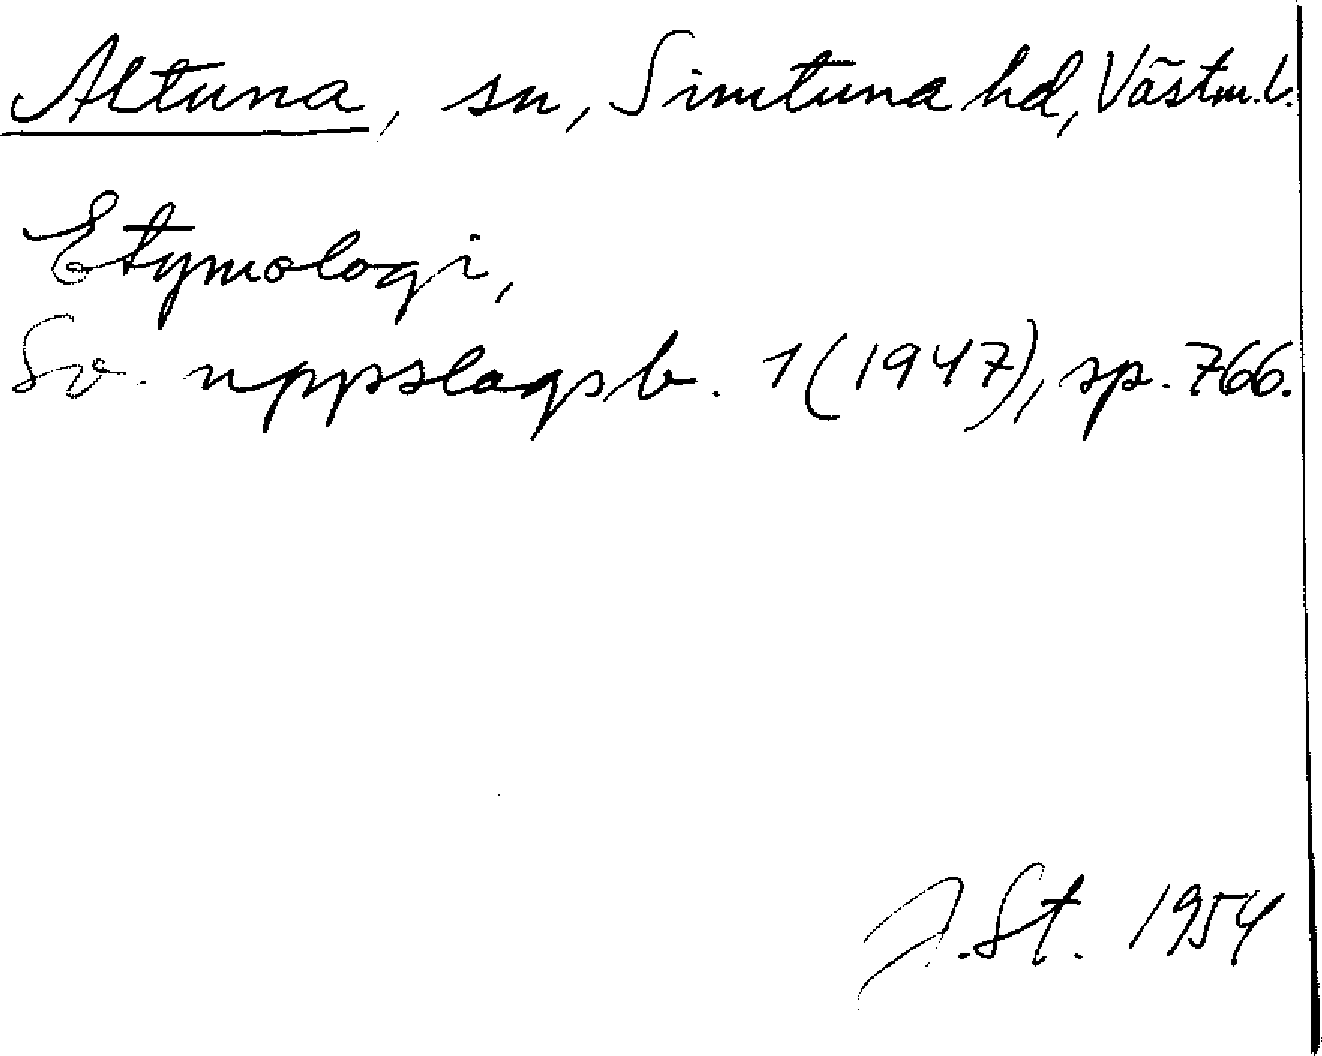 Altuna, sn, Simtuna hd, Västm. l.
Etymologi,
Sv. uppslagsb. 1 (1947), sp. 766.
J. St. 1954